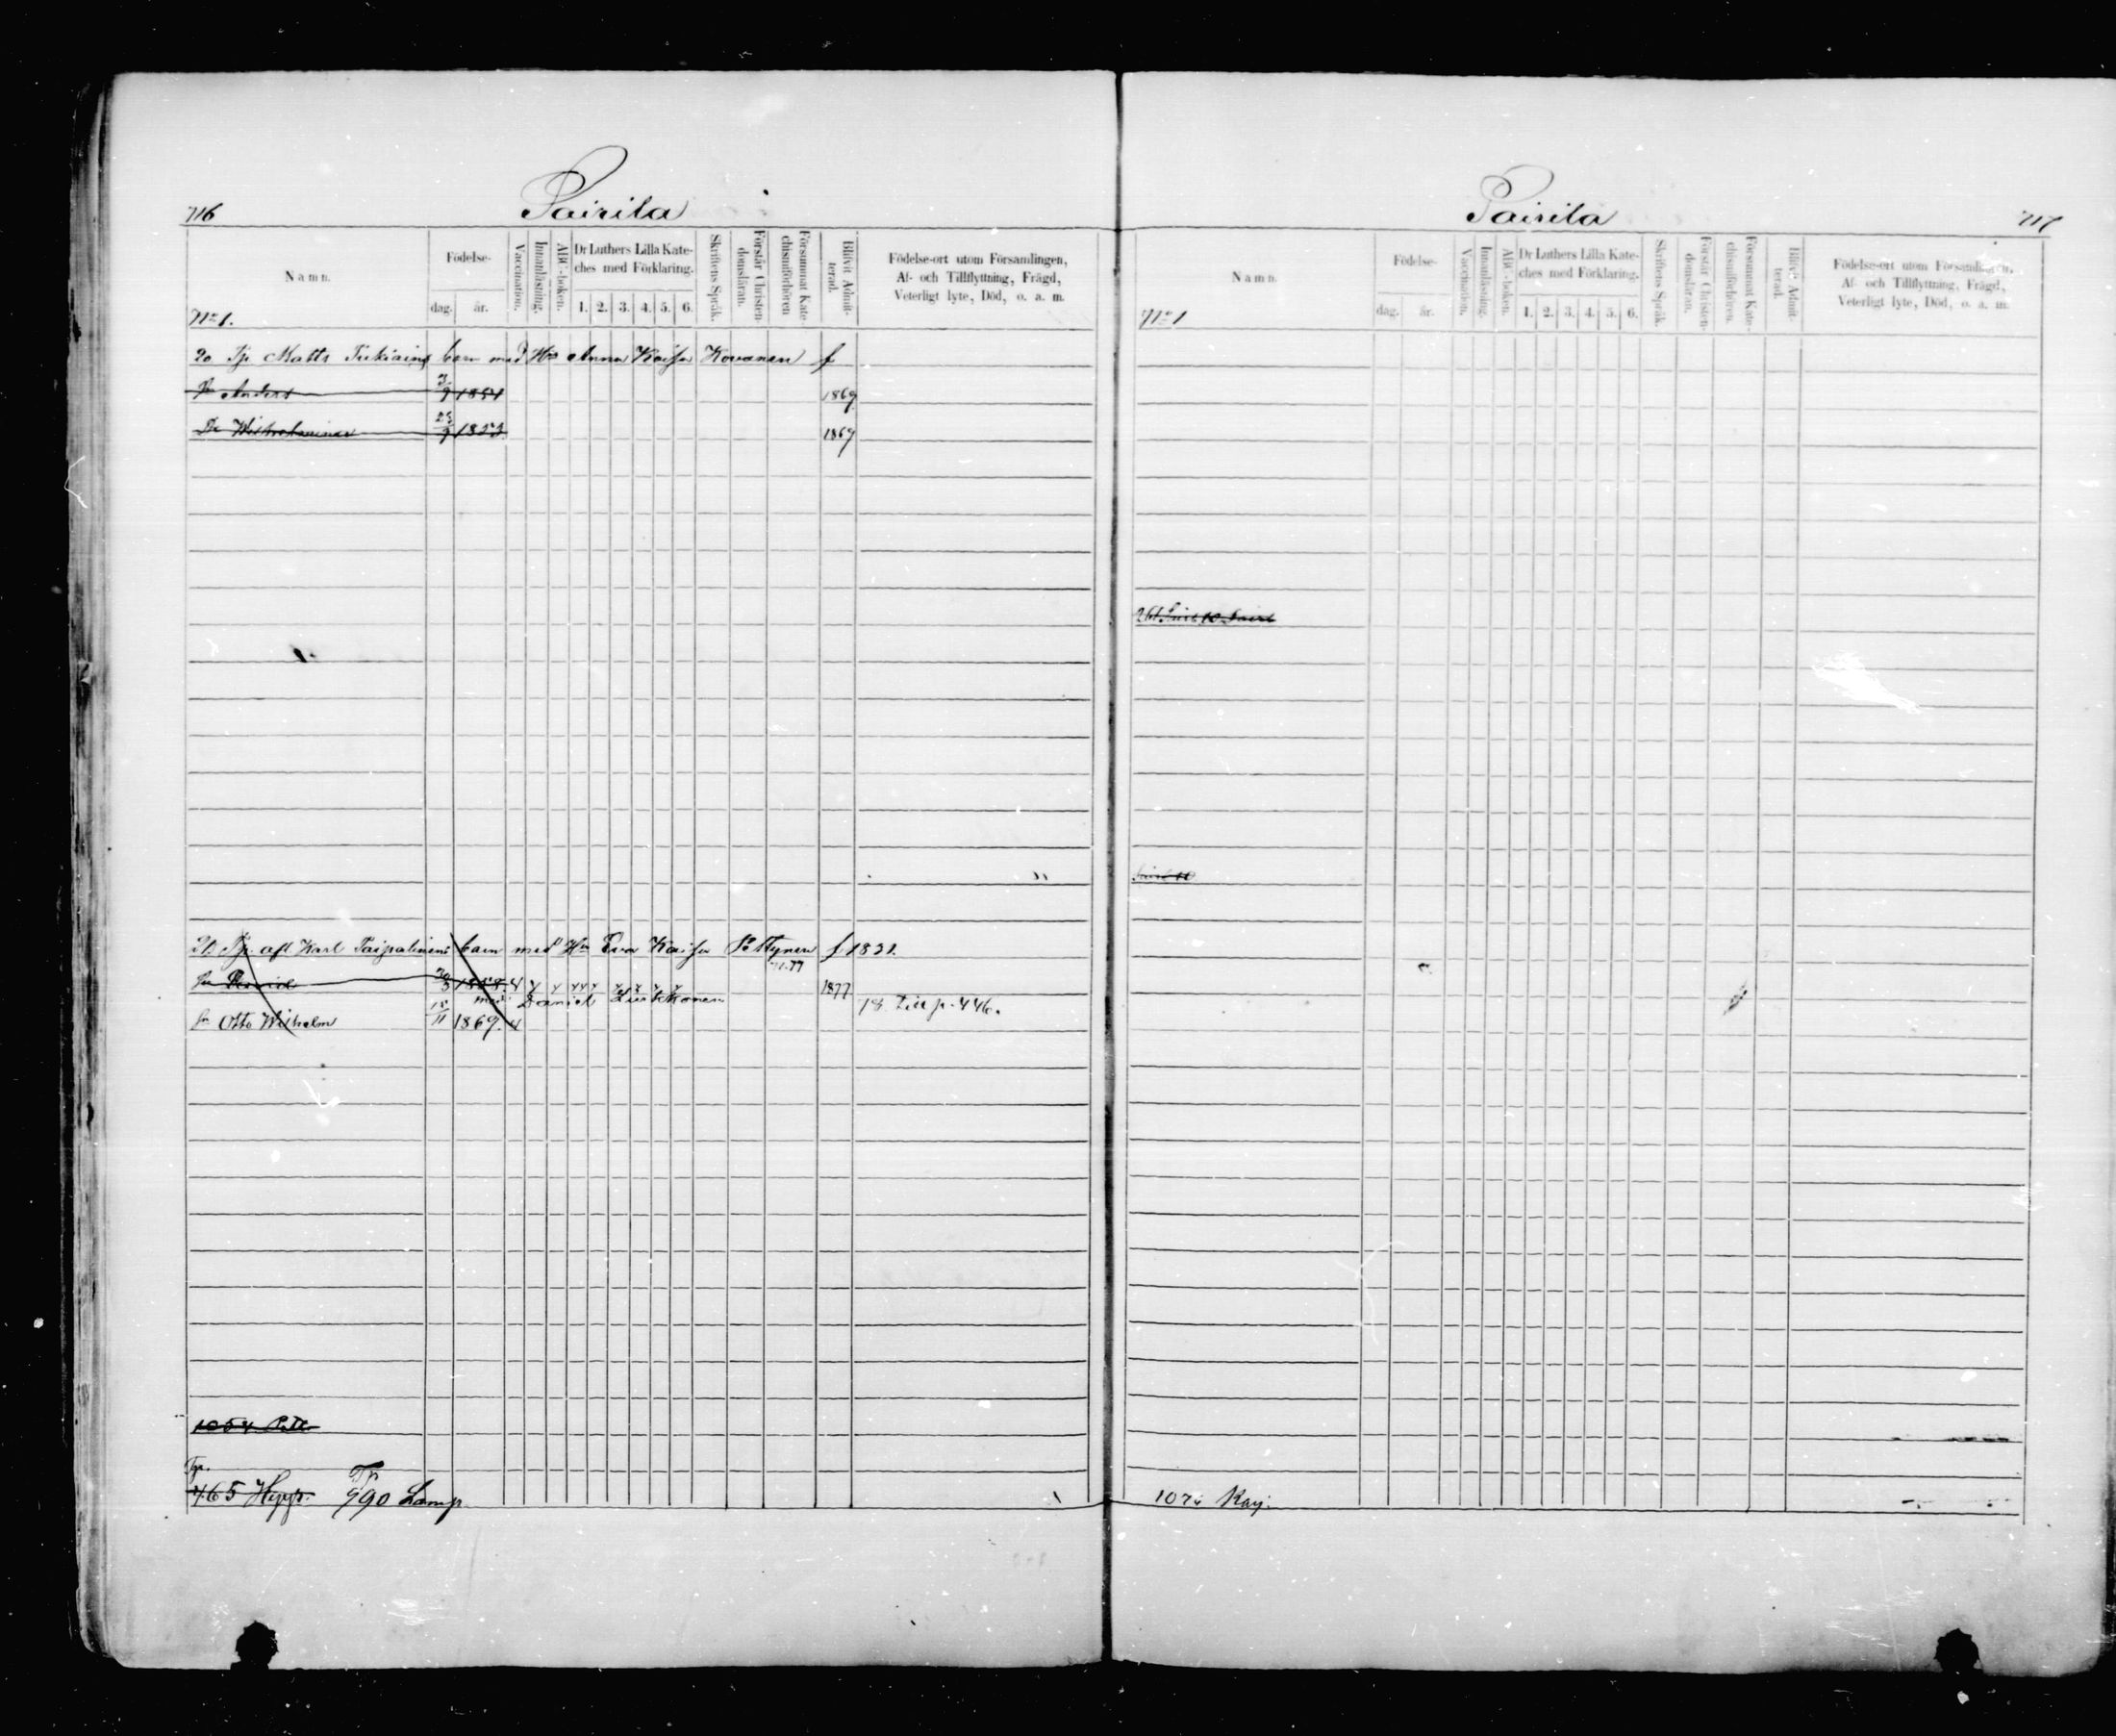 716
Pairila
Namn.
Födelse-
dag.
år.
Vaccination.
Innanläsning.
ABC-boken.
Dr Luthers Lilla Kate-
ches med Förklaring.
1. 2. 3. 4. 5. 6.
Skriftens Språk.
Förstår Christen-
domsläran.
Försummat Kate-
chismiförhören
Blifvit Admit-
terad.
Födelse-ort utom Församlingen,
Af- och Tillflyttning, Frägd,
Veterligt lyte, Död, o. a. m.
No 1.
20 Tji Matts barn med Hu Anna Kaisa Kovanen f
Anders 3/9 1851 1869
Dr Wilhelmina 25/9 1853 1869
20 Tji afl Karl Taipalinens barn med Hu Eva Kaisa Pöttynen f 1831.
30/8 1858 1877
med Daniel 78 p. 446.
Sn Otto Wilhelm 15/11 1869.
1054
Tji. Tji
465 Hepp. 990 Lamp.
717
Pairila
Namn.
Födelse-
dag.
år.
Vaccination.
Innanläsning.
ABC-boken.
Dr Luthers Lilla Kate-
ches med Förklaring.
1. 2. 3. 4. 5. 6.
Skriftens Språk.
Förstår Christen-
domsläran.
Försummat Kate-
chismiförhören.
Blifvit Admit-
terad.
Födelse-ort utom Församlingen,
Af- och Tillflyttning, Frägd,
Veterligt lyte, Död, o. a. m.
No 1